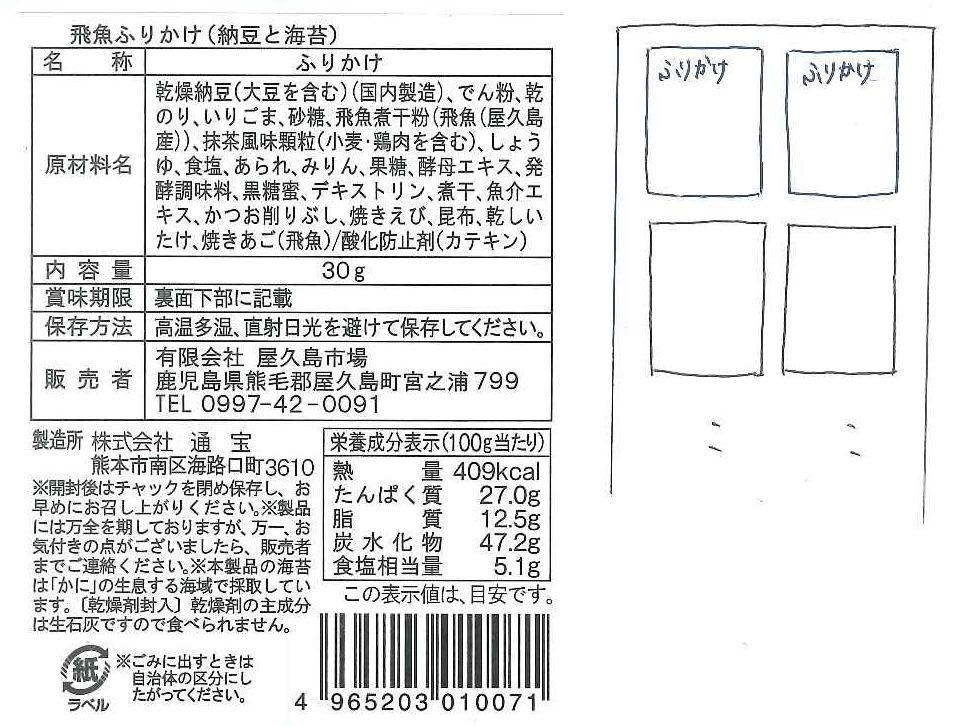 飛魚ふりかけ(納豆と海苔)
名 称 ふりかけ
原材料名
乾燥納豆(大豆を含む)(国内製造)、でん粉、乾
のり、いりごま、砂糖、飛魚煮干粉(飛魚(屋久島
産))、抹茶風味顆粒(小麦・鶏肉を含む)、しょう
ゆ、食塩、あられ、みりん、果糖、酵母エキス、発
酵調味料、黒糖蜜、デキストリン、煮干、魚介エ
キス、かつお削りぶし、焼きえび、昆布、乾しい
たけ、焼きあご(飛魚)/酸化防止剤(カテキン)
内 容 量 30g
賞味期限 裏面下部に記載
保存方法 高温多湿、直射日光を避けて保存してください。
販 売 者
有限会社 屋久島市場
鹿児島県熊毛郡屋久島町宮之浦799
TEL 0997-42-0091
製造所 株式会社 通 宝
熊本市南区海路口町3610
※開封後はチャックを閉め保存し、お
早めにお召し上がりください。※製品
には万全を期しておりますが、万一、お
気付きの点がございましたら、販売者
までご連絡ください。※本製品の海苔
は「かに」の生息する海域で採取してい
ます。〔乾燥剤封入〕乾燥剤の主成分
は生石灰ですので食べられません。
栄養成分表示(100g当たり)
熱 量 409kcal
たんぱく質 27.0g
脂 質 12.5g
炭水化物 47.2g
食塩相当量 5.1g
この表示値は、目安です。
紙
ラベル
※ごみに出すときは
自治体の区分にし
たがってください。
4 965203 010071
ふりかけ
ふりかけ